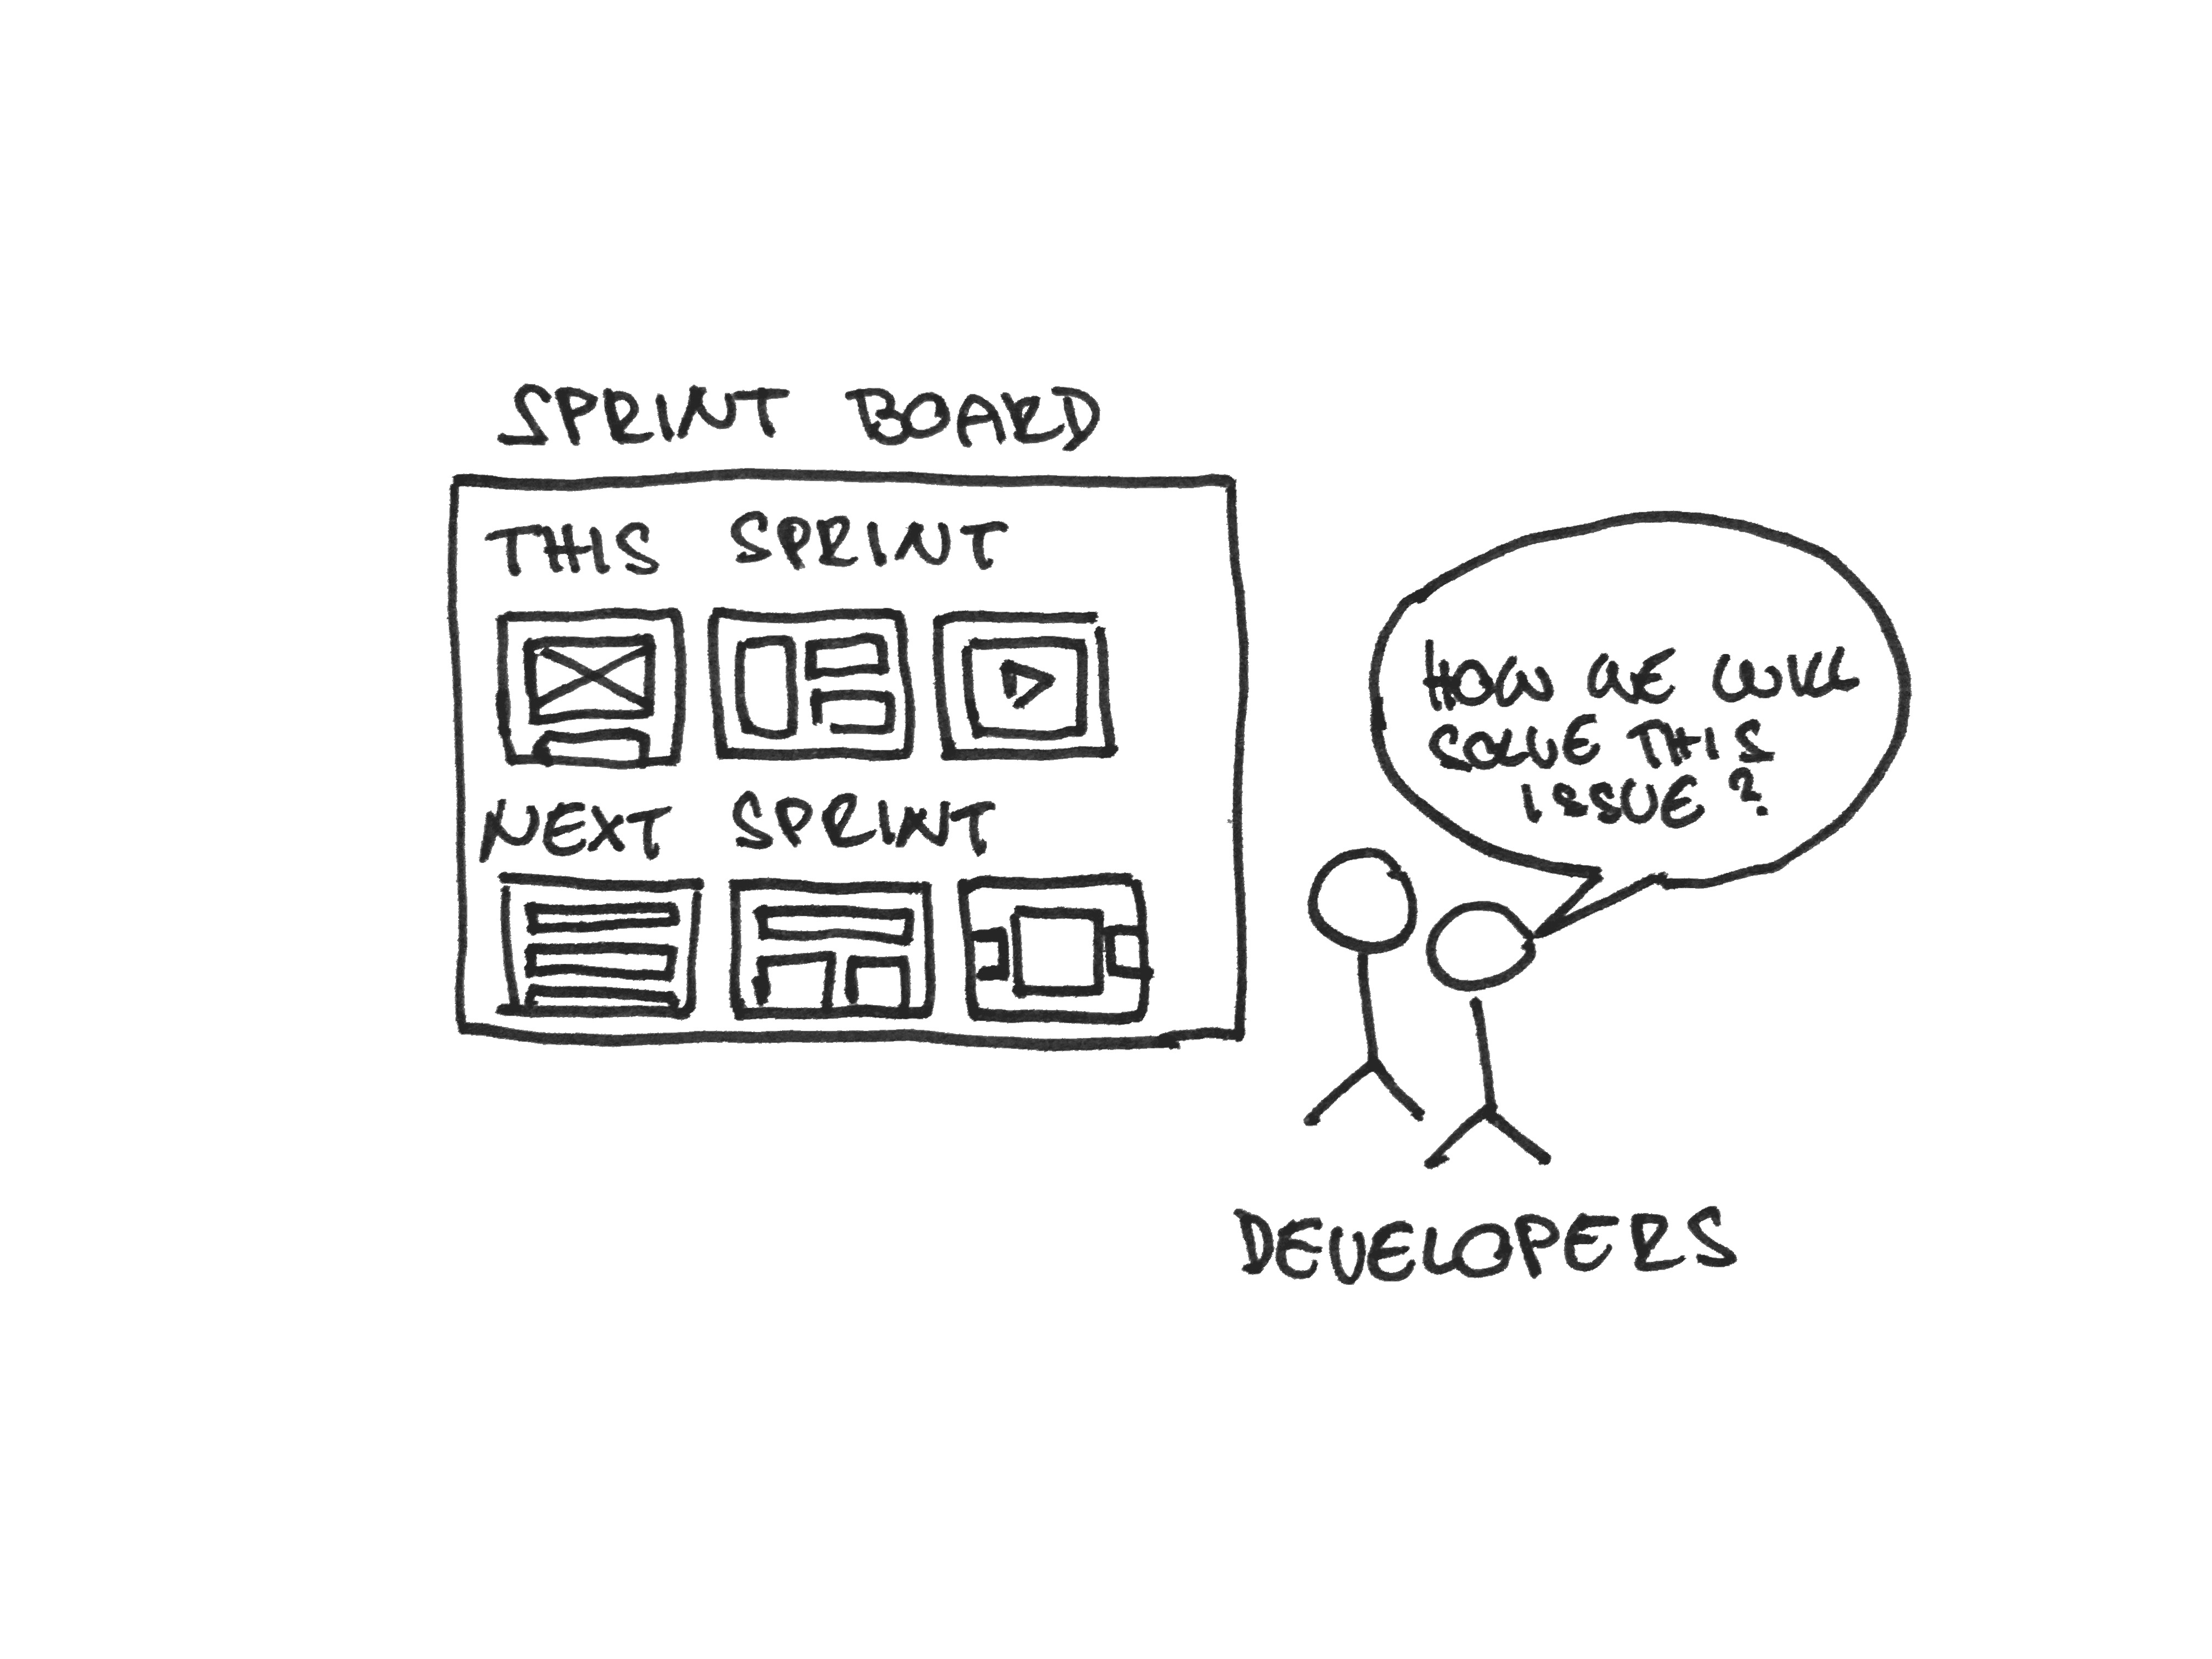 SPRINT BOARD
THIS SPRINT
NEXT SPRINT
HOW WE WILL
SOLVE THIS
ISSUE?
DEVELOPERS